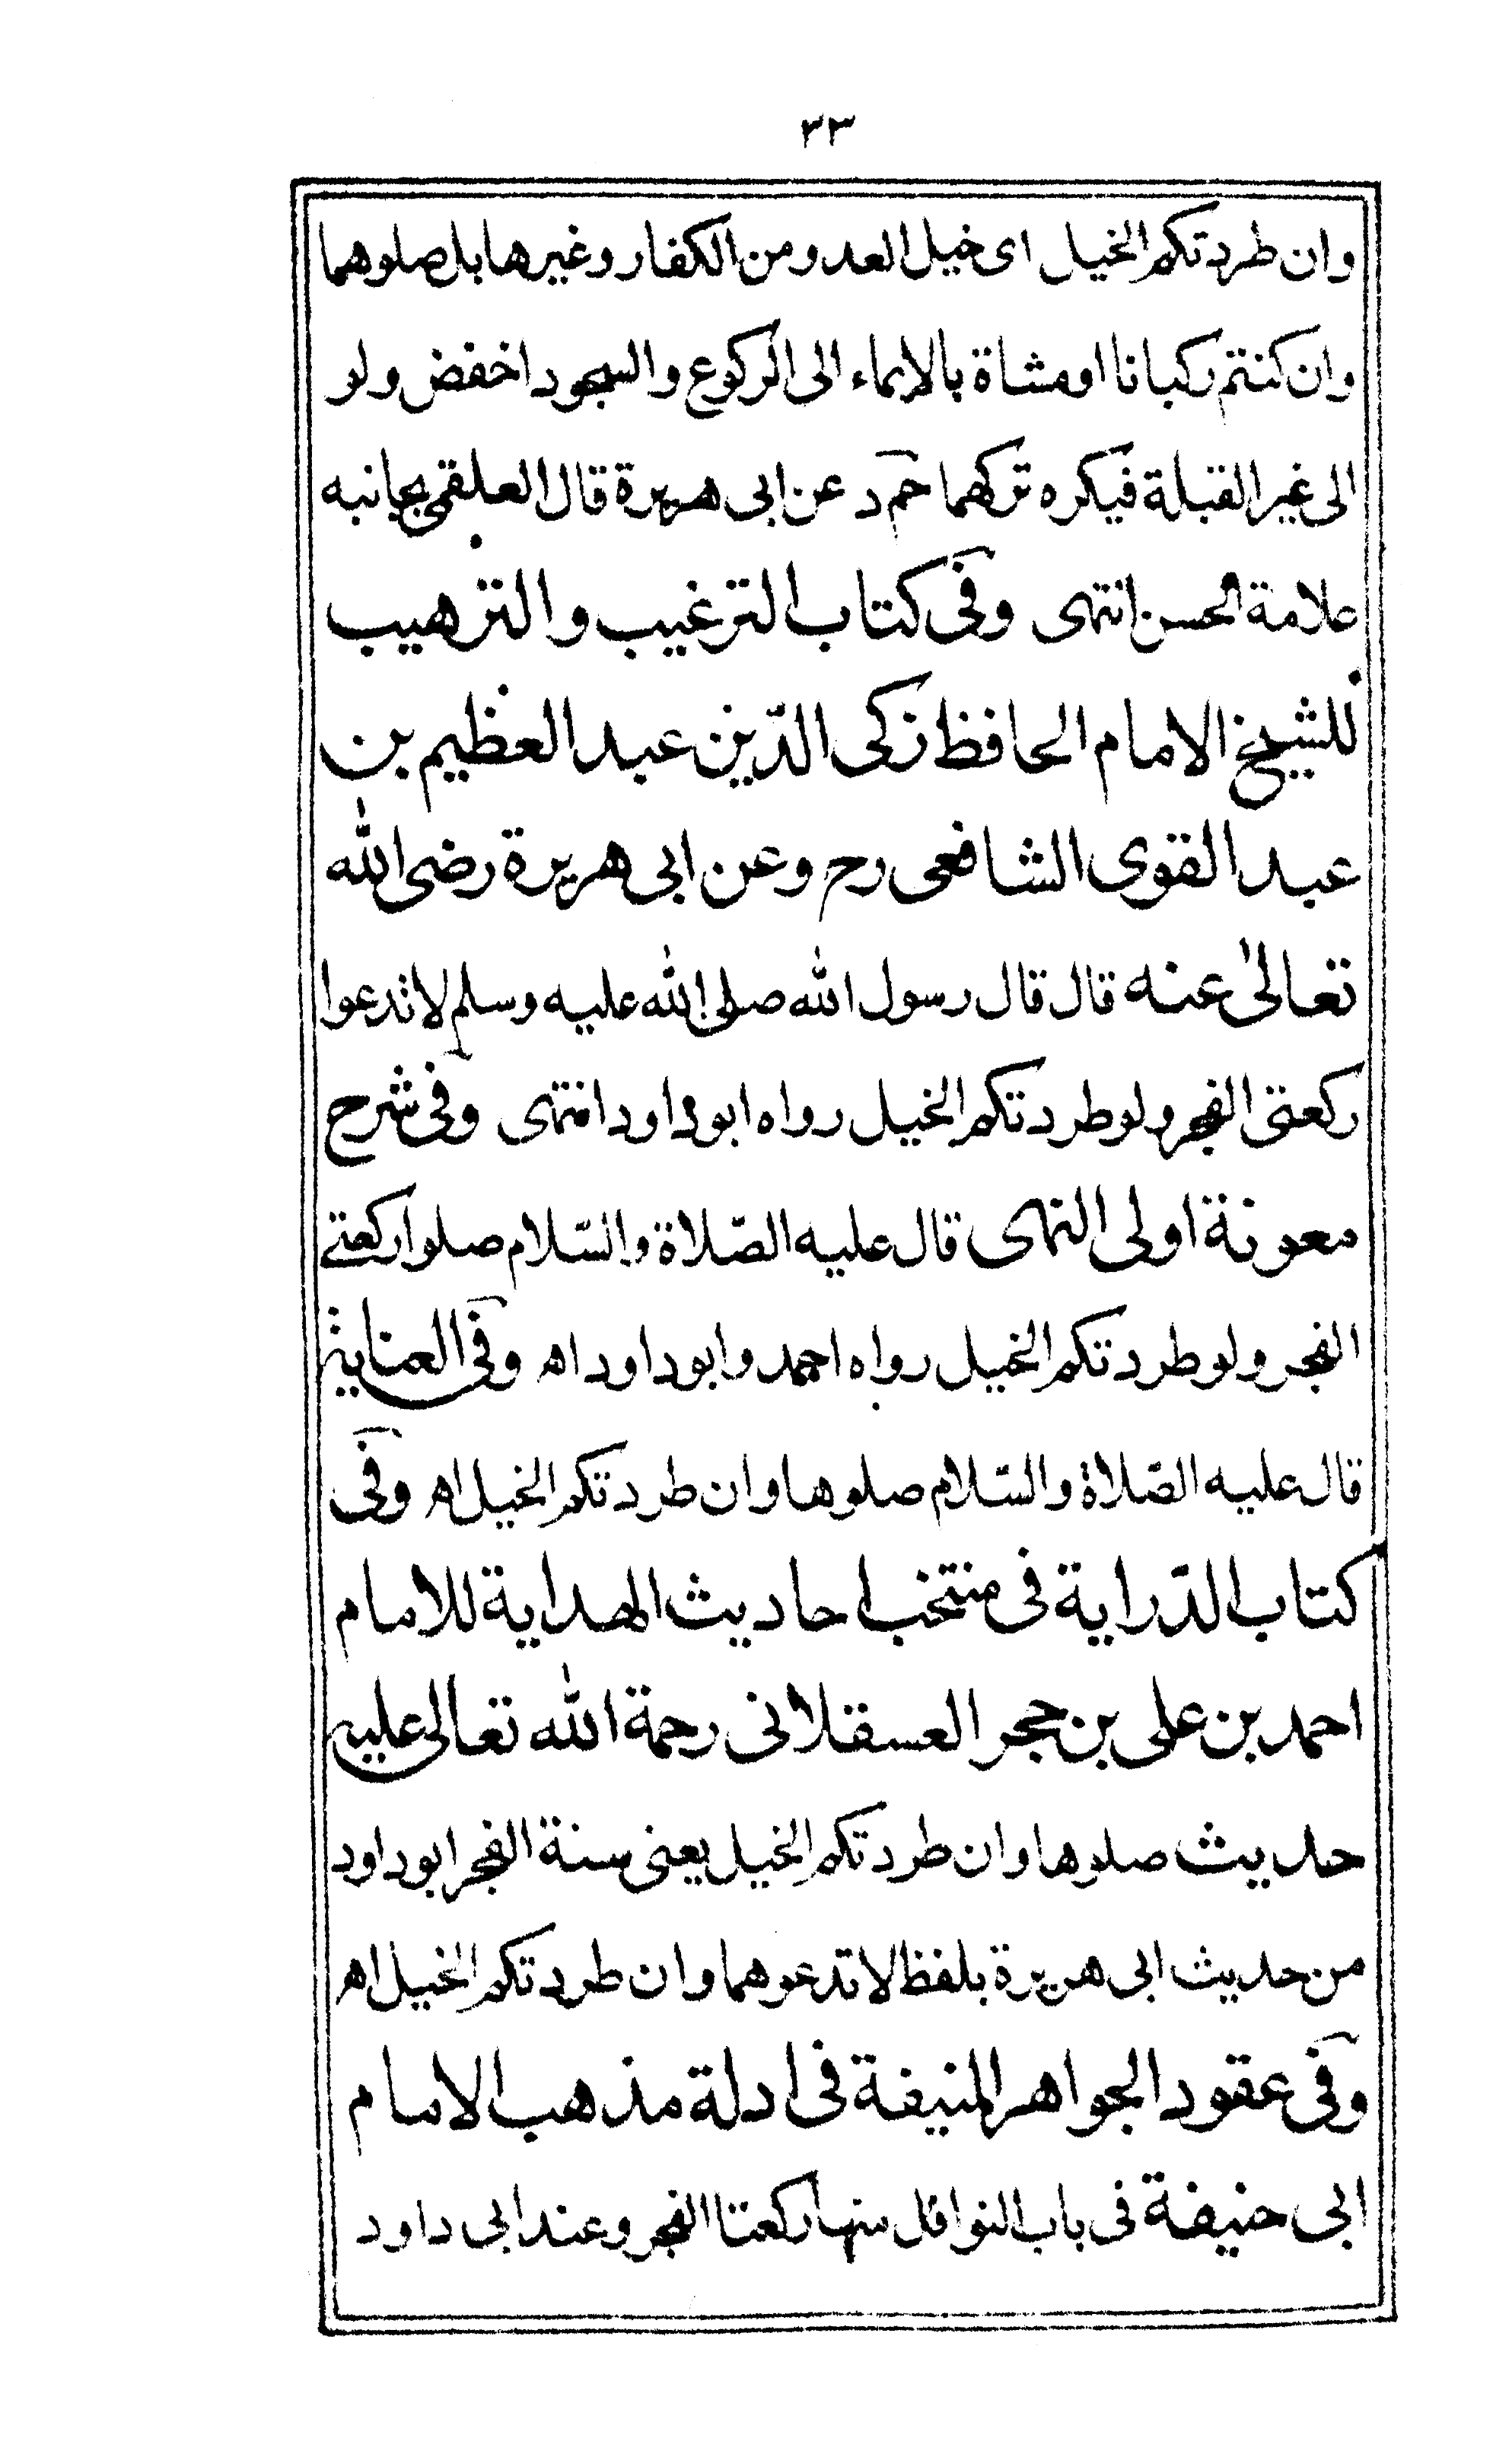 ٣٣
وان طردتكم الخيل اى خيل العدو من الكفار وغيرها بل صلوهما
وان كنتم ركبانا او مشاة بالايماء الى الركوع والسجود اخفض ولو
الى غير القبلة فيكره تركهما حم د عن ابى هريرة قال العلقمى بجانبه
علامة الحسن انتهى وفى كتاب الترغيب والترهيب
للشيخ الامام الحافظ زكى الدّين عبد العظيم بن
عبد القوى الشافعى رح وعن ابى هريرة رضى الله
تعالى عنه قال قال رسول الله صلى الله عليه وسلم لا تدعوا
ركعتى الفجر ولو طردتكم الخيل رواه ابو داود انتهى وفى شرح
معونة اولى النهى قال عليه الصّلاة والسّلام صلوا ركعتى
الفجر ولو طردتكم الخيل رواه احمد وابو داود اه وفى العناية
قال عليه الصّلاة والسّلام صلوها وان طردتكم الخيل اه وفى
كتاب الدّراية فى منتخب احاديث الهداية للامام
احمد بن على بن حجر العسقلانى رحمة الله تعالى عليه
حديث صلوها وان طردتكم الخيل يعنى سنة الفجر ابو داود
من حديث ابى هريرة بلفظ لا تدعوهما وان طردتكم الخيل اه
وفى عقود الجواهر المنيفة فى ادلة مذهب الامام
ابى حنيفة فى باب النوافل منها ركعتا الفجر وعند ابى داود